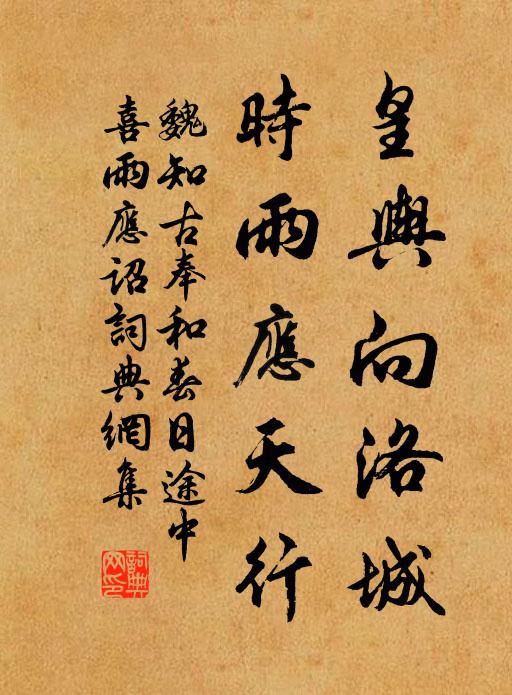 皇輿向洛城
時雨應天行
魏知古奉和春日途中
喜雨應詔詞典網集
詞典
网印